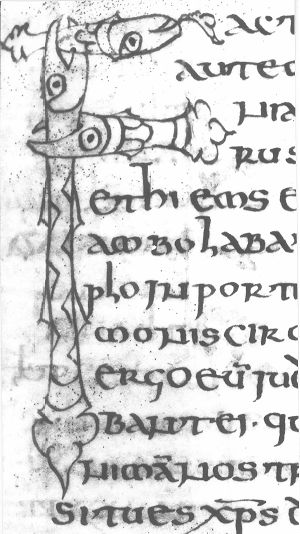 FACT
AUTE
NIA
RUS
ET hIEMS E
AMBOLABA
PLO IN PORTI
MONIS CIRC
ERGO EŪ IUD
BANT EI · QU
NIMĀ NOS TR
SI TU ES XP̄S D